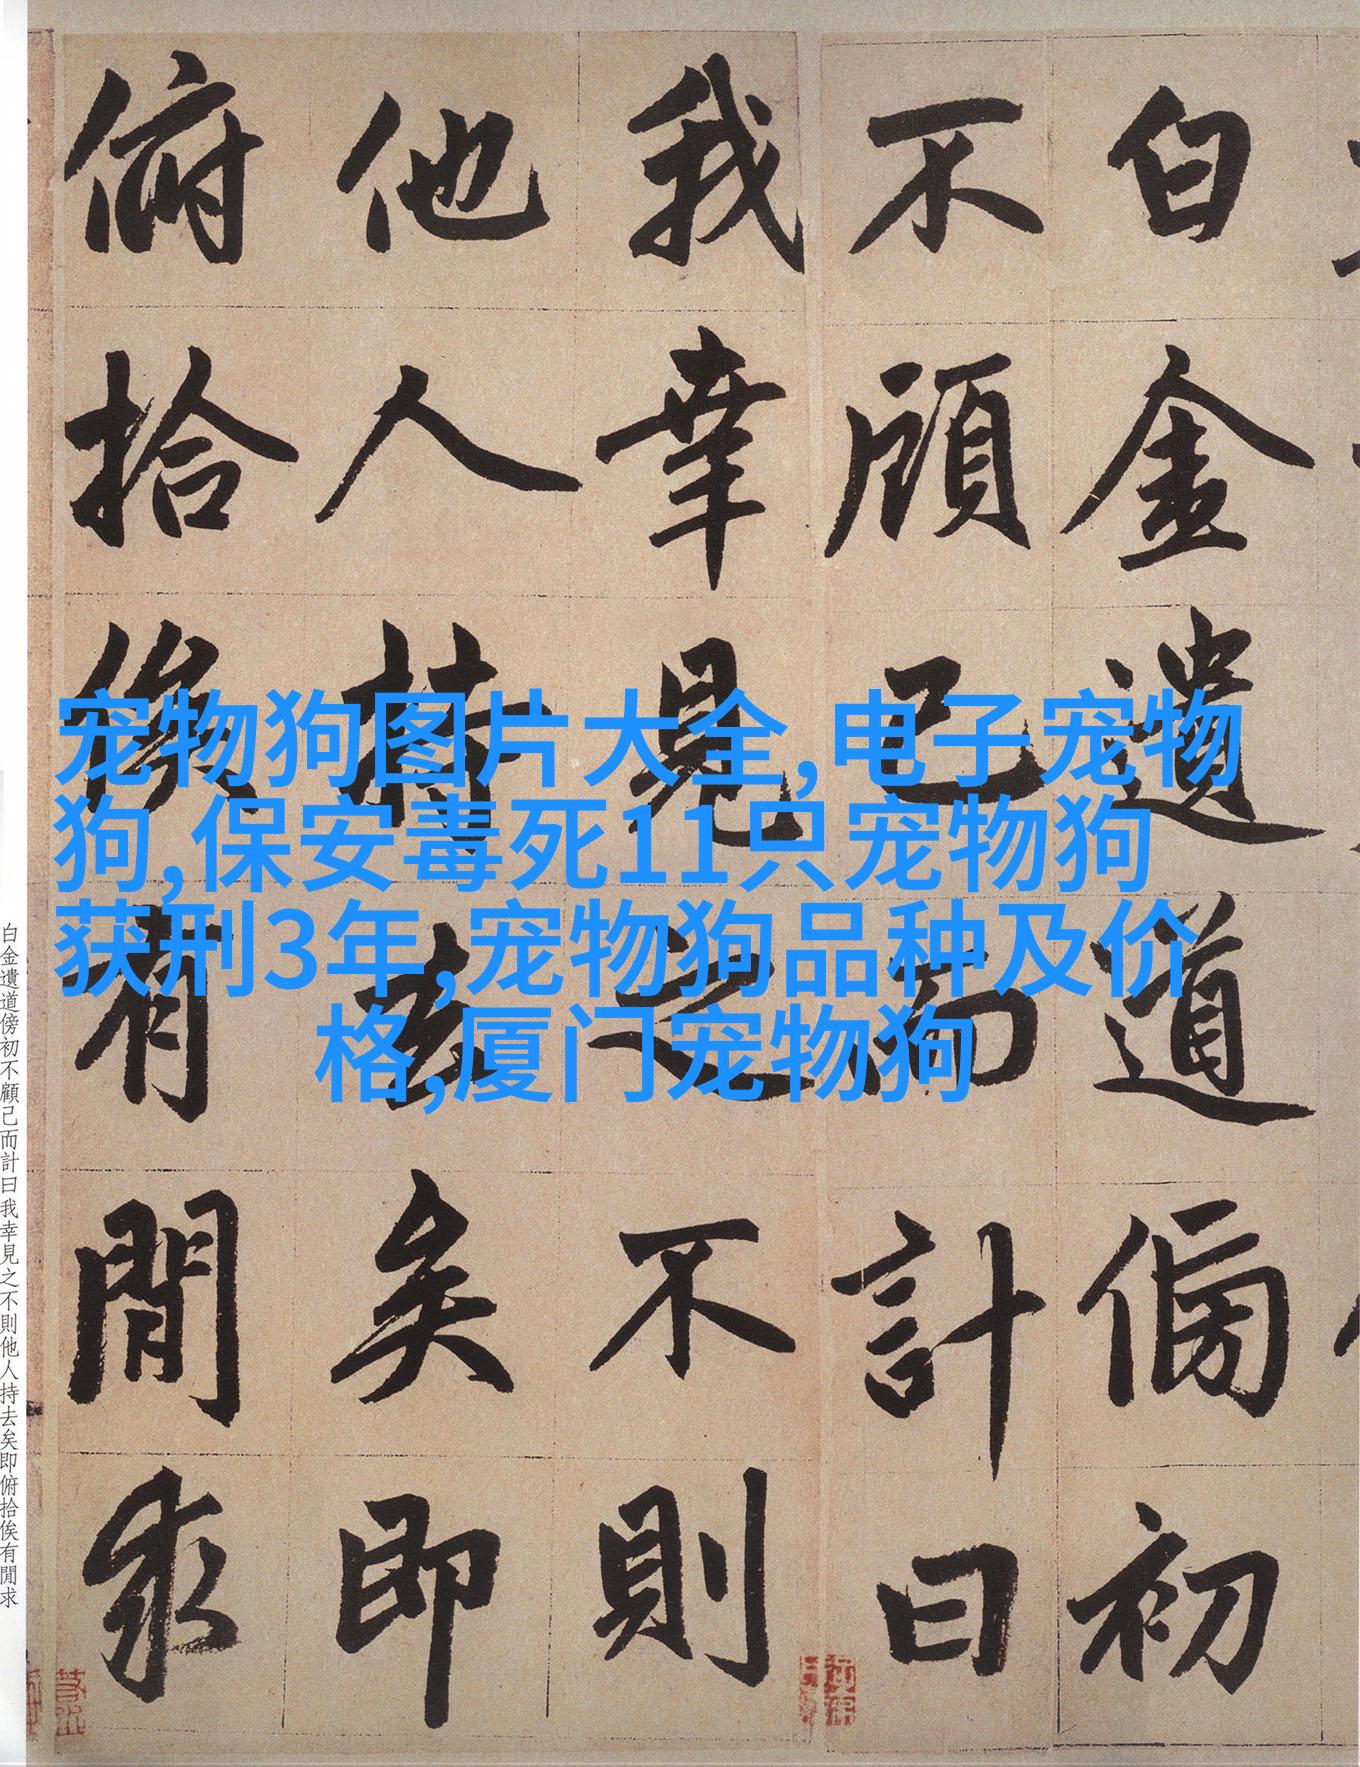 白金遺道傍初
不顧己而計曰
我幸見之不則
他人持去矣即
俯拾俟有閒求
宠物狗图片大全,电子宠物
狗,保安毒死11只宠物狗
获刑3年,宠物狗品种及价
格,厦门宠物狗
白金遺道傍初不顧己而計曰我幸見之不則他人持去矣即俯拾俟有閒求